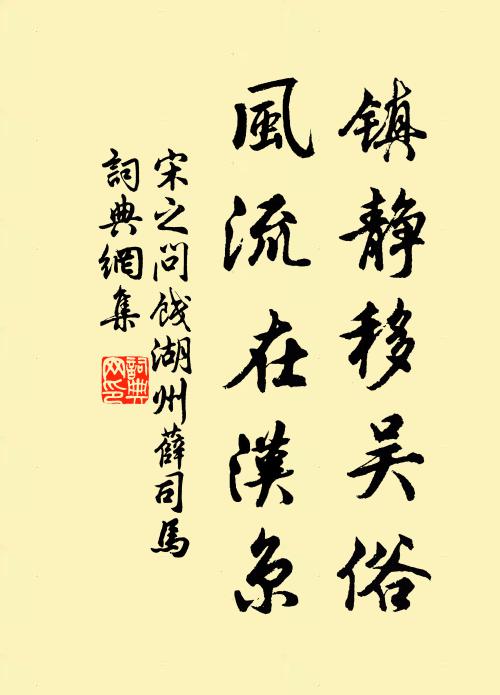 镇静移吴俗
風流在漢京
宋之问餞湖州薛司馬
詞典網集
詞典
网印